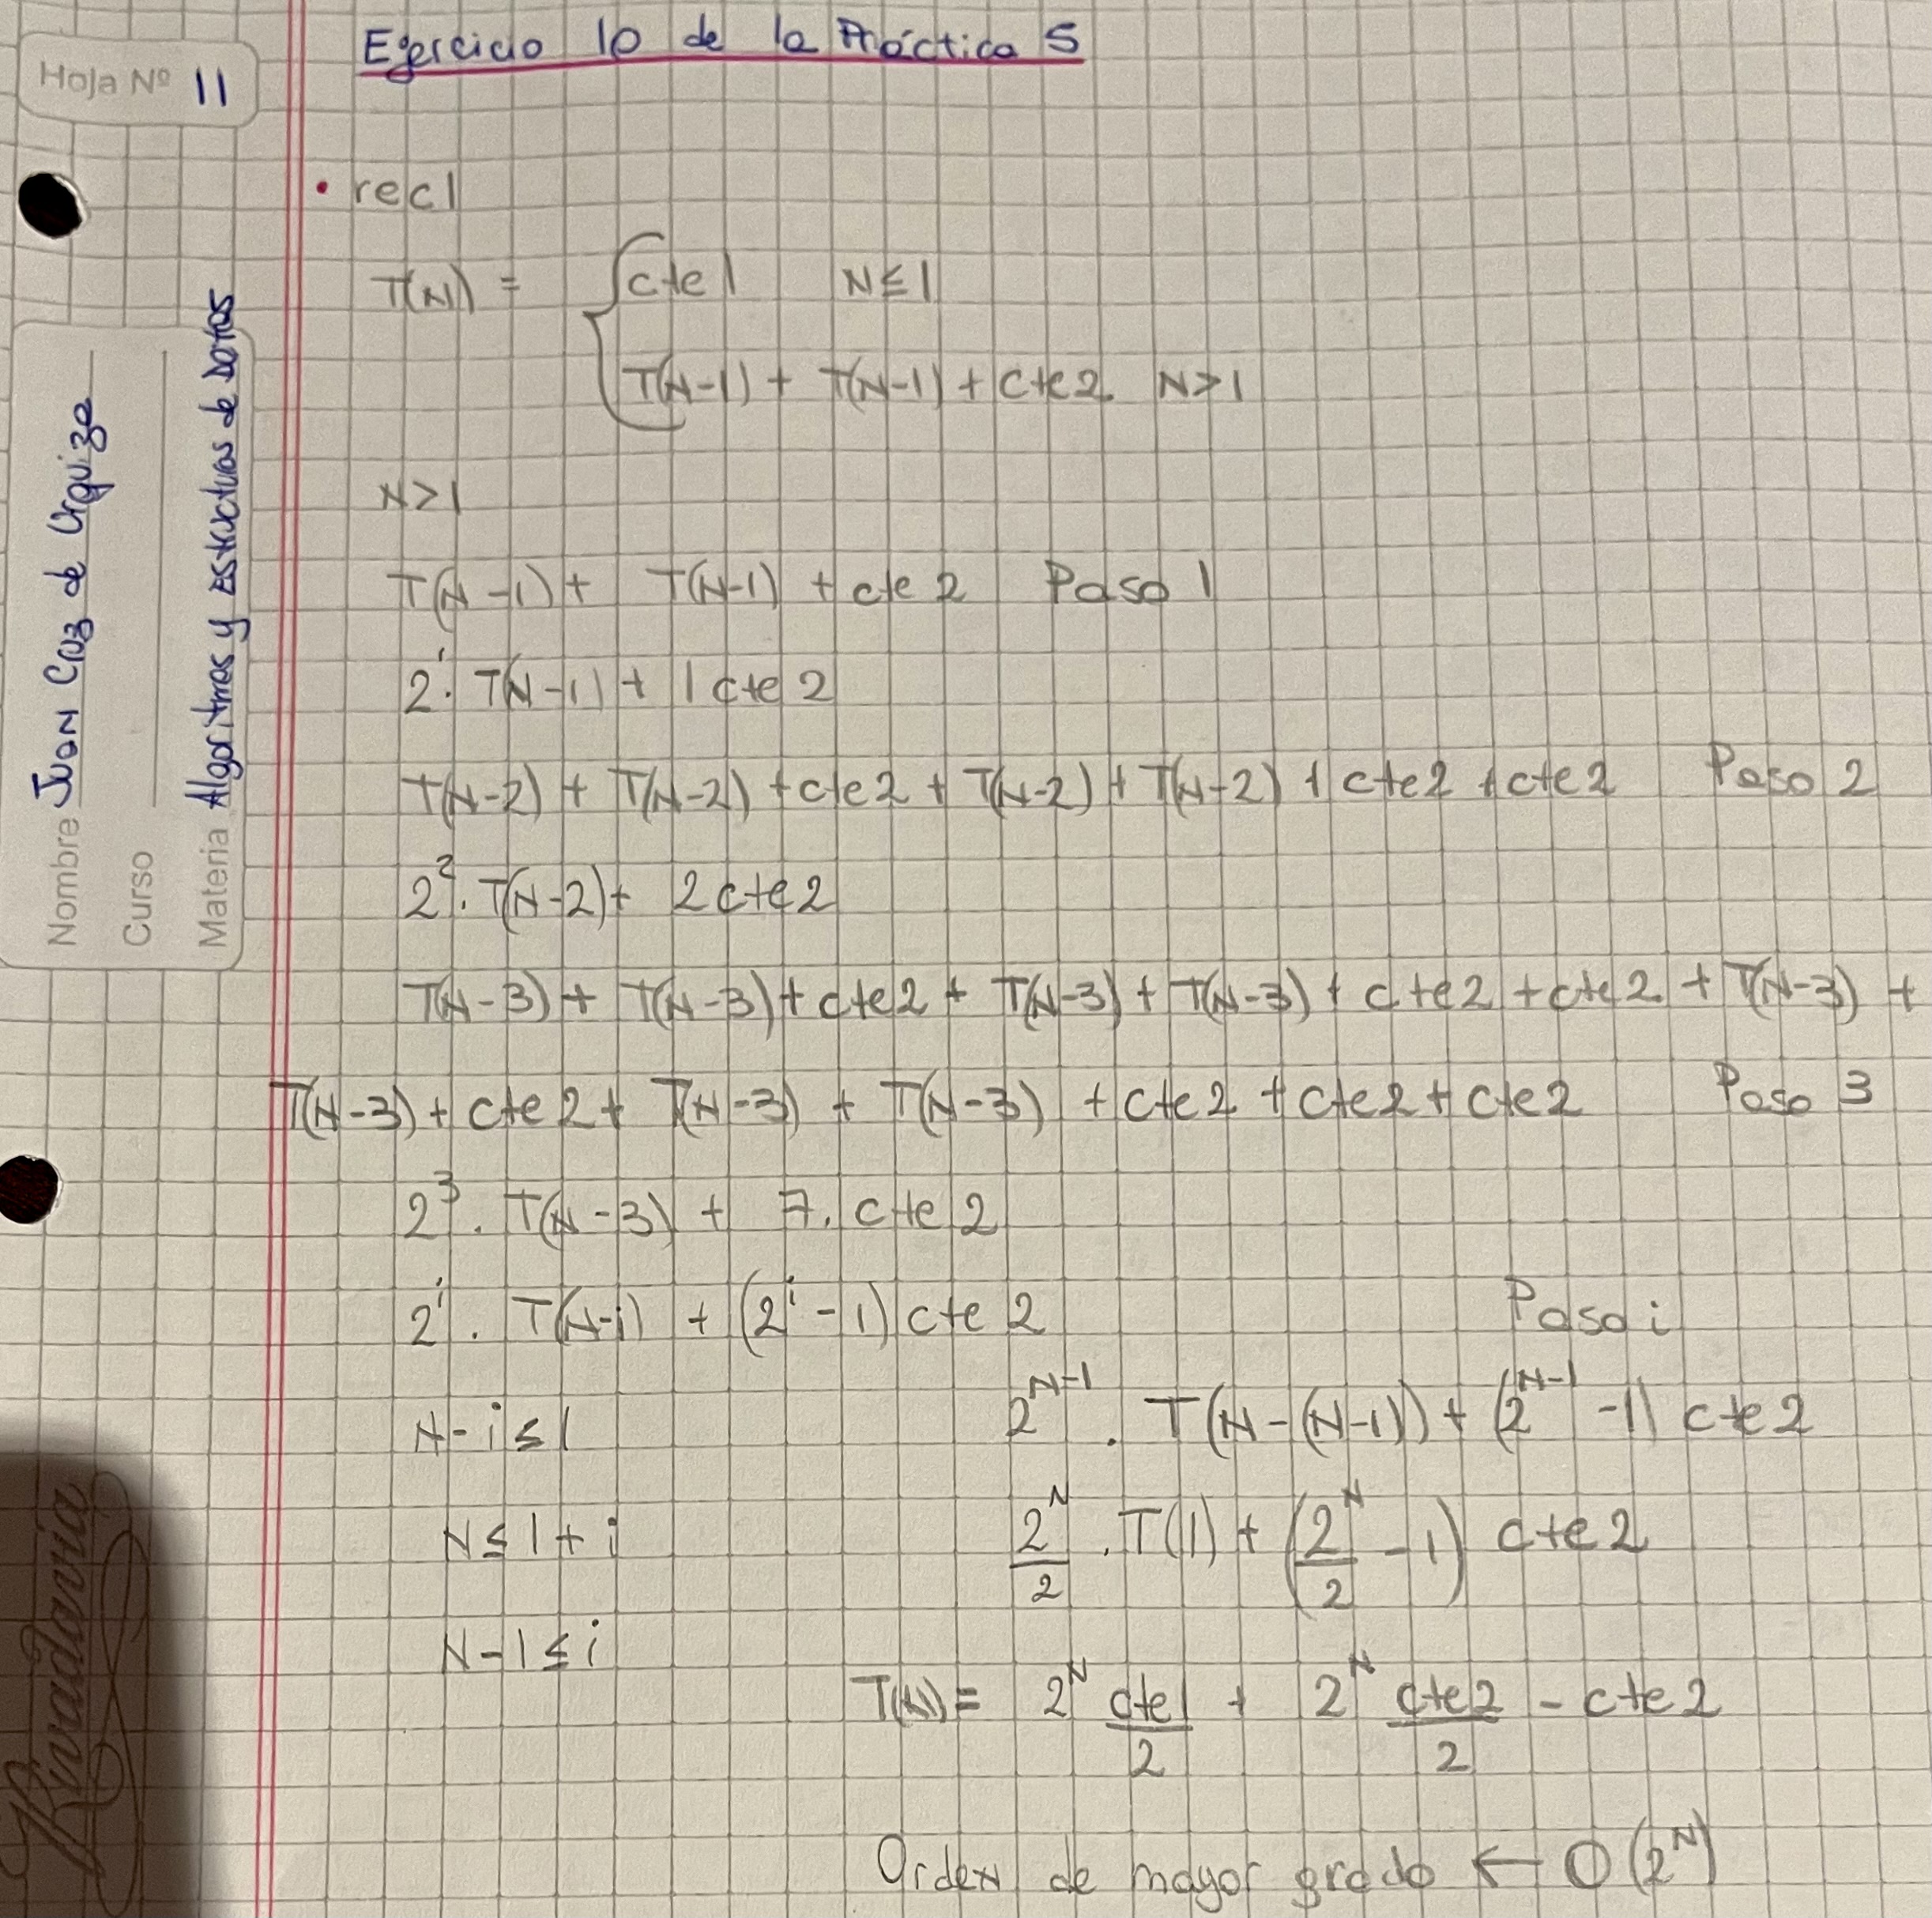 Ejercicio 10 de la Práctica 5
Hoja Nº 11
Nombre Juan Cruz de Urquiza
Curso
Materia Algoritmos y Estructuras de Datos
• rec1
T(N) = { cte1 N≤1
T(N-1) + T(N-1) + cte2 N>1
N>1
T(N-1) + T(N-1) + cte2 Paso 1
2¹. T(N-1) + 1 cte2
T(N-2) + T(N-2) + cte2 + T(N-2) + T(N-2) + cte2 + cte2 Paso 2
2². T(N-2) + 2cte2
T(N-3) + T(N-3) + cte2 + T(N-3) + T(N-3) + cte2 + cte2 + T(N-3) +
T(N-3) + cte2 + T(N-3) + T(N-3) + cte2 + cte2 + cte2 Paso 3
2³. T(N-3) + 7. cte2
2ⁱ. T(N-i) + (2ⁱ - 1) cte2 Paso i
N-i ≤ 1
N ≤ 1 + i
N-1 ≤ i
2^(N-1) . T(N-(N-1)) + (2^(N-1) - 1) cte2
2^N/2 . T(1) + (2^N/2 - 1) cte2
T(N) = 2^N cte1/2 + 2^N cte2/2 - cte2
Orden de mayor grado ← O(2^N)
Rivadavia